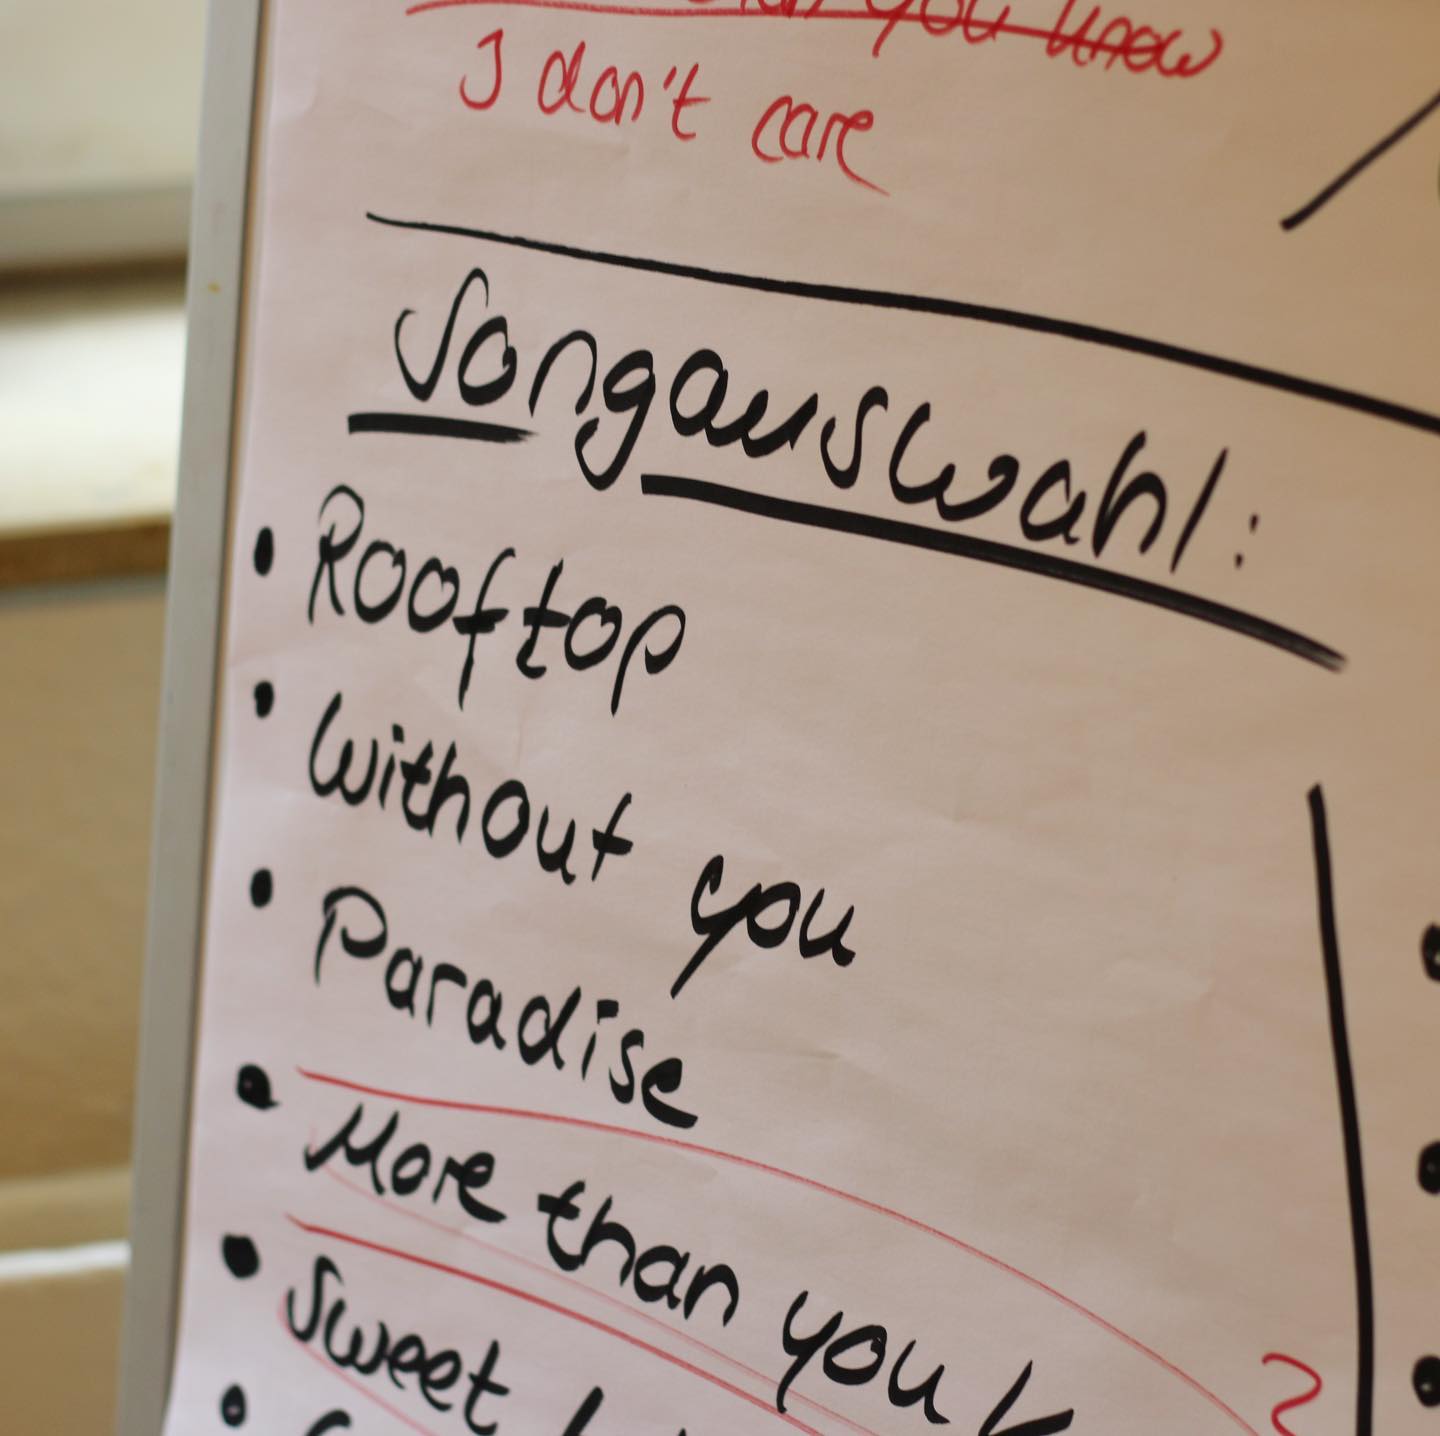 you know
I don't care
Songauswahl:
• Rooftop
• Without you
• Paradise
• More than you k
• Sweet